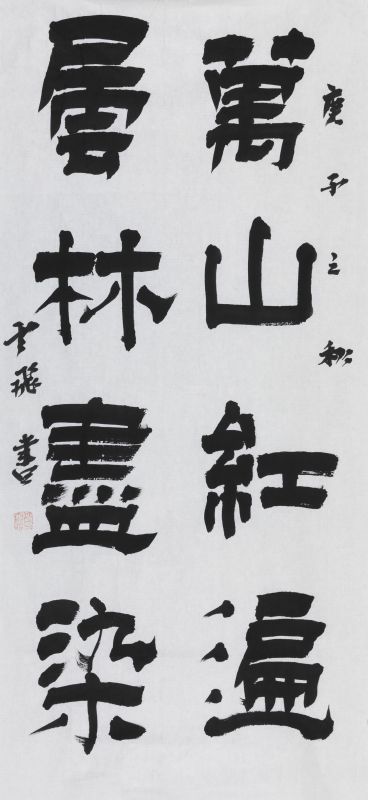 庚子之秋
萬山紅遍
層林盡染
飛書